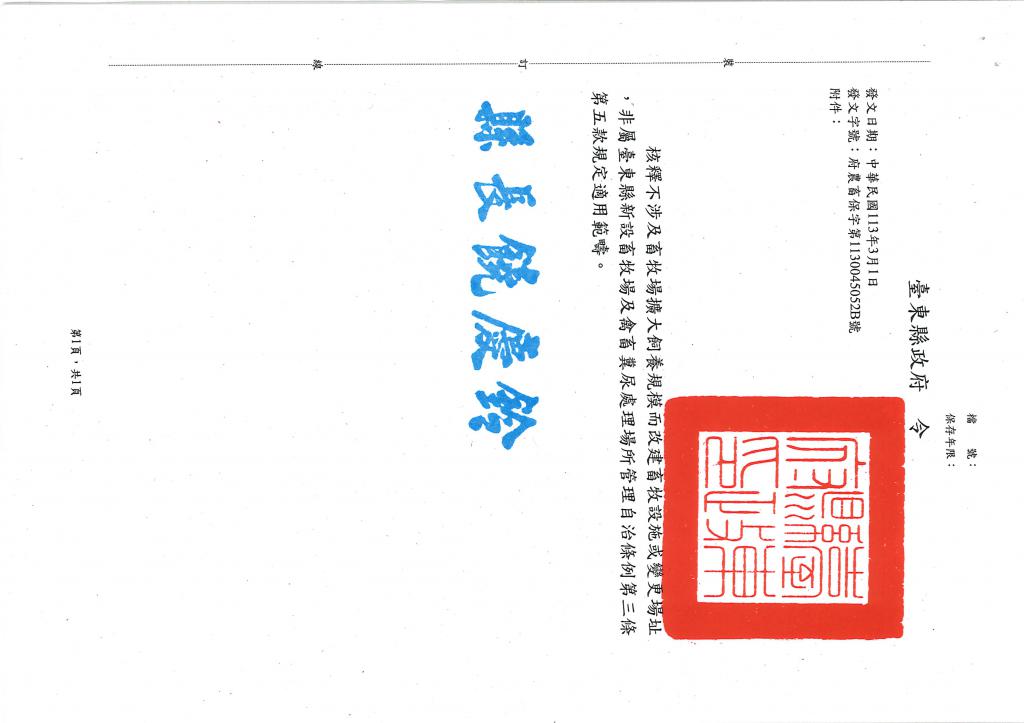 檔　　號：
保存年限：
臺東縣政府　令
發文日期：中華民國113年3月1日
發文字號：府農畜保字第1130045052B號
附件：
裝
訂
線
核釋不涉及畜牧場擴大飼養規模而改建畜牧設施或變更場址
，非屬臺東縣新設畜牧場及禽畜糞尿處理場所管理自治條例第三條
第五款規定適用範疇。
縣長饒慶鈴
第1頁，共1頁